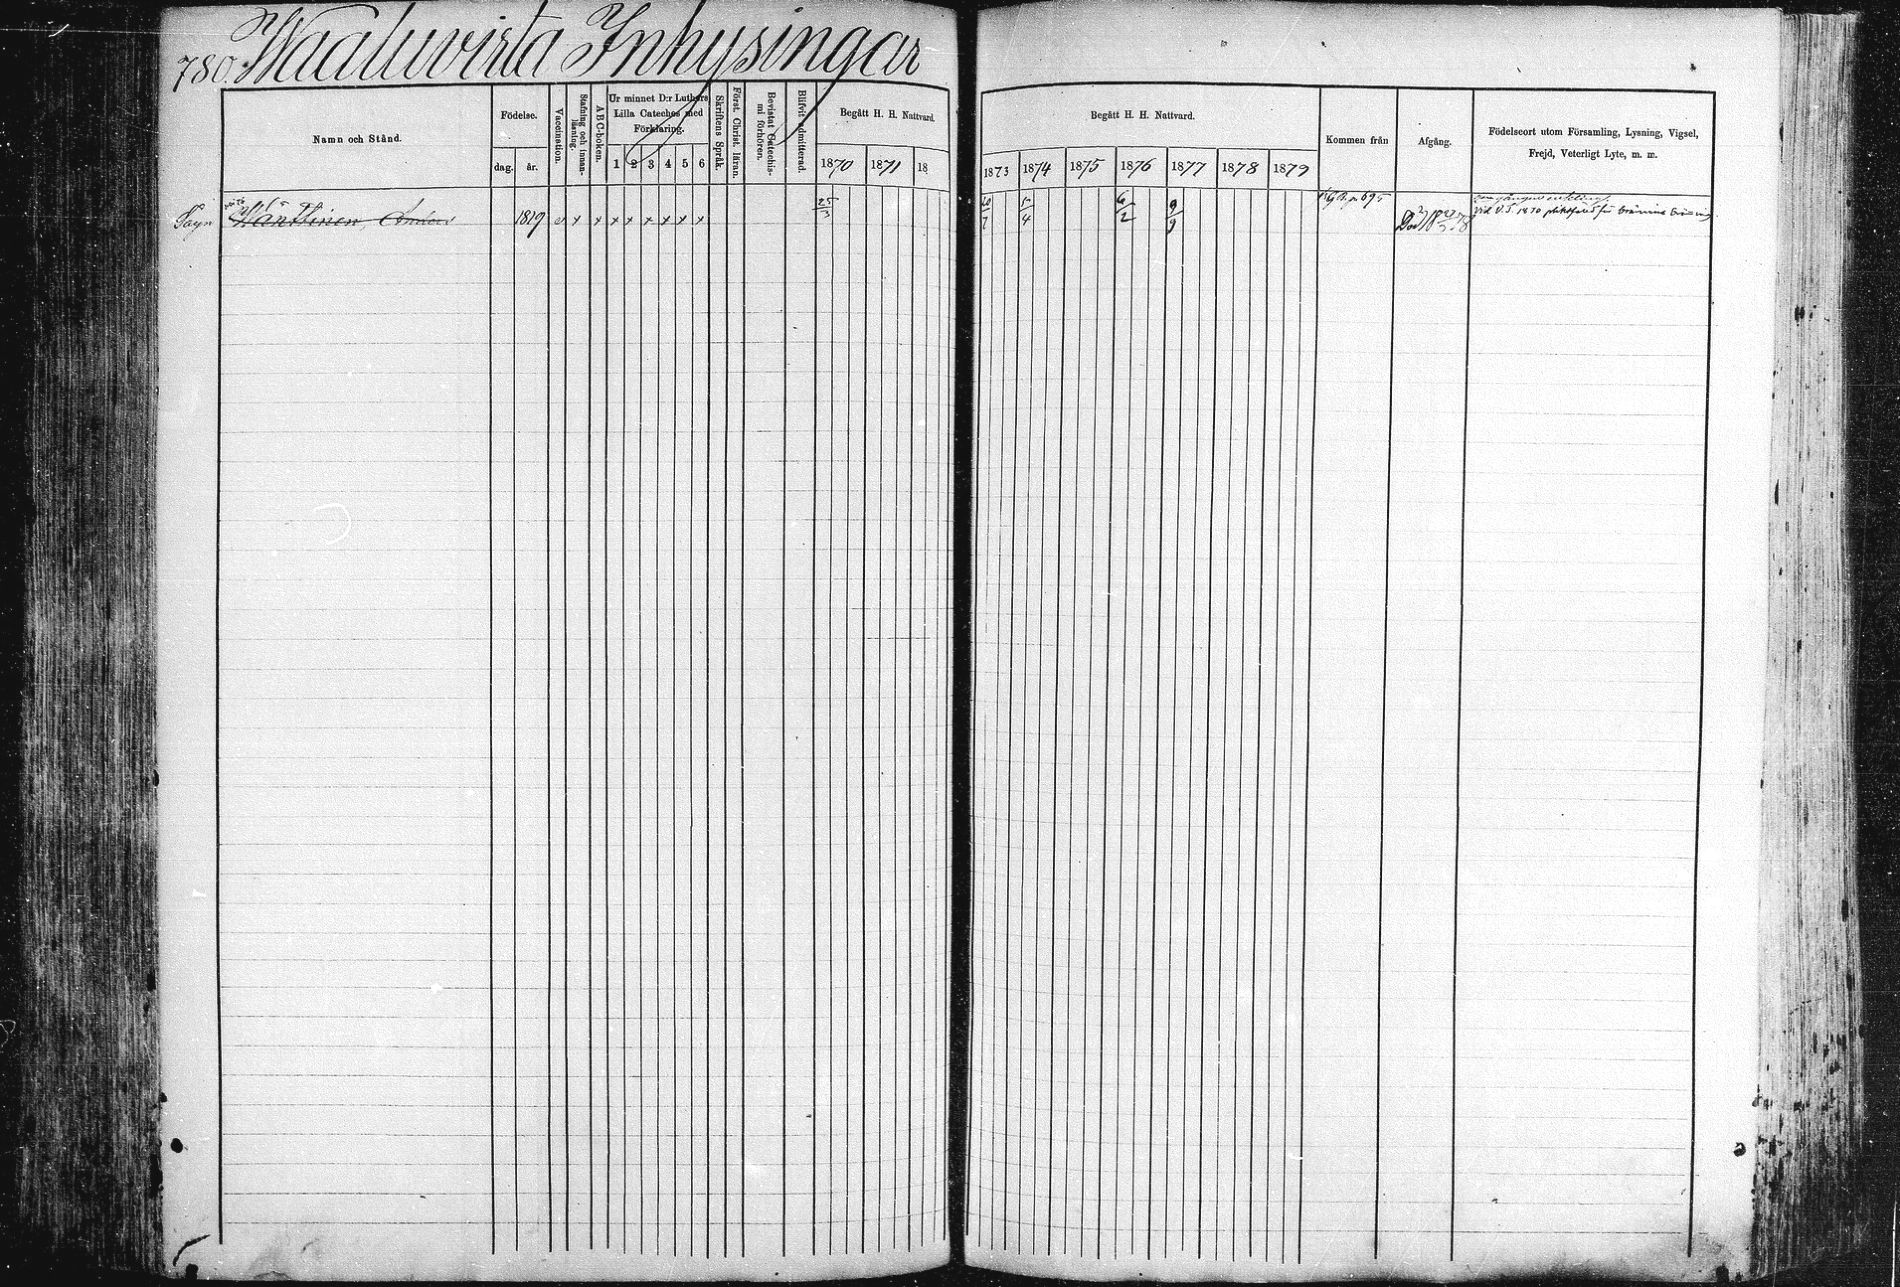 780. Waaluvirta Inhysingar
Namn och Stånd.
Födelse.
dag.
år.
Vaccination.
Stafning och innan-
läsning.
A B C-boken.
Ur minnet D:r Luthers
Lilla Cateches med
Förklaring.
1 2 3 4 5 6
Skriftens Språk.
Först. Christ. läran.
Bevistat Catechis-
mi förhören.
Blifvit admitterad.
Begått H. H. Nattvard.
1870 1871 18
Begått H. H. Nattvard.
1873 1874 1875 1876 1877 1878 1879
Kommen från
Afgång.
Födelseort utom Församling, Lysning, Vigsel,
Frejd, Veterligt Lyte, m. m.
Anders 1819 x x x x x x x x
25/3
5/4 6/2 9/9
p 695
Död
1870